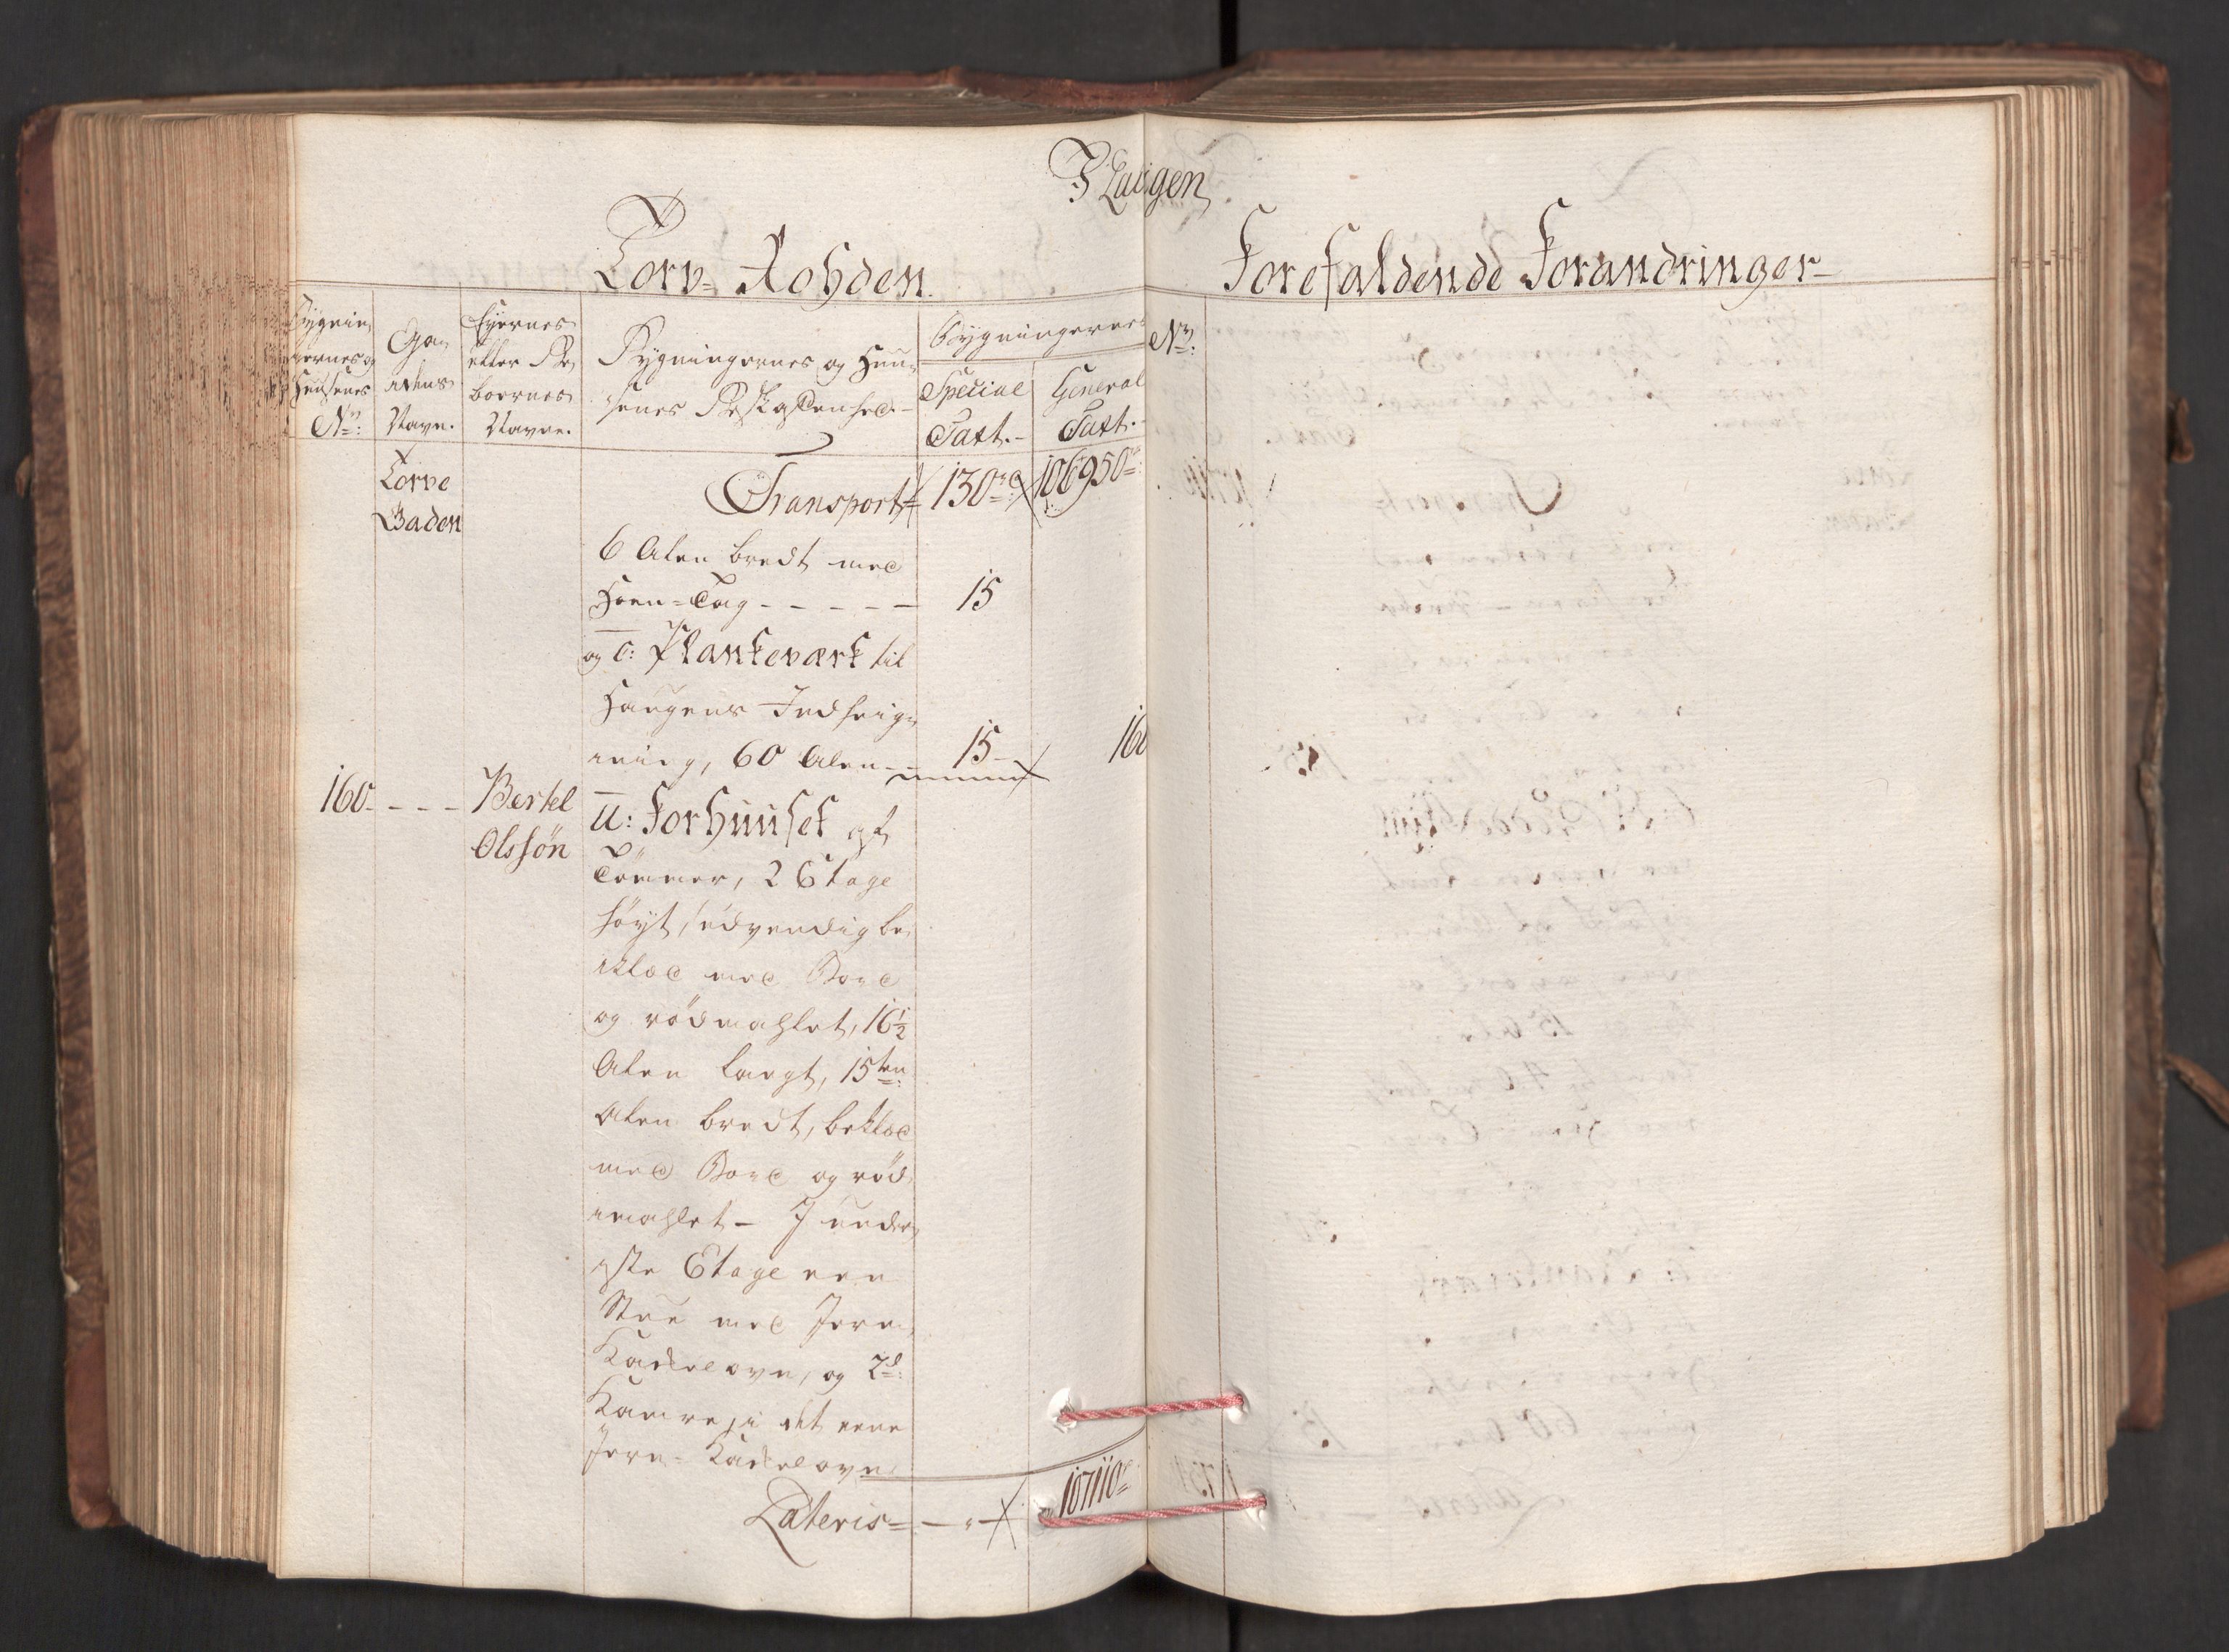 I Laugen
Torv- Rohden
Forefaldende Forandringer
Bygnin,
gernes og
Huusenes
No:
Ga,
dens
Navn.
Eyernes
eller Be,
boernes
Navne.
Bygningernes og Huu,
senes Beskaffenhed.
Bygningernes
Special
Taxt.-
General
Taxt.-
No:
Torve
Gaden
Transport 130 rd 106950
6 Alen bredt med
Steen-Tag - - - - - 15
og c: Plankeværk til
Haugens Indheig,
ning, 60 Alen - - 15 - 160
160 - - - Bertel
Olssön
a: Forhuuset af
Tömmer, 2 Etage
höyt, udvendig be,
klæd med Bord
og rödmahlet, 16½
Alen langt, 15ten
Alen bredt, beklæd
med Bord og röd,
mahlet - I under,
ste Etage een
Stue med Jern,
Kackelovn, og 2de
Kamre, i det eene
Jern-Kackelovn
Lateris - - 107110